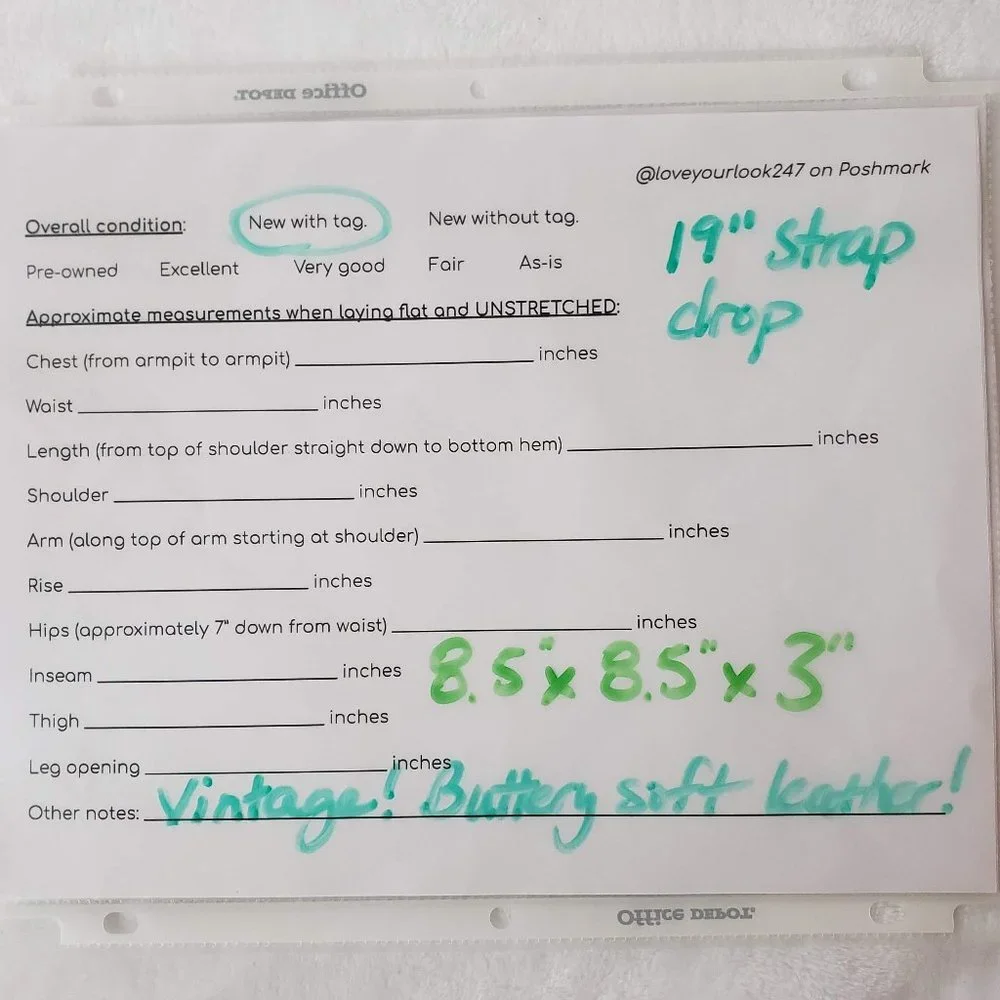 Office DEPOT.
@loveyourlook247 on Poshmark
Overall condition: New with tag. New without tag.
19" strap
drop
Pre-owned Excellent Very good Fair As-is
Approximate measurements when laying flat and UNSTRETCHED:
Chest (from armpit to armpit) ____________ inches
Waist ____________ inches
Length (from top of shoulder straight down to bottom hem) ____________ inches
Shoulder ____________ inches
Arm (along top of arm starting at shoulder) ____________ inches
Rise ____________ inches
Hips (approximately 7" down from waist) ____________ inches
8.5" x 8.5" x 3"
Inseam ____________ inches
Thigh ____________ inches
Leg opening ____________ inches
Other notes: Vintage! Buttery soft leather!
Office DEPOT.